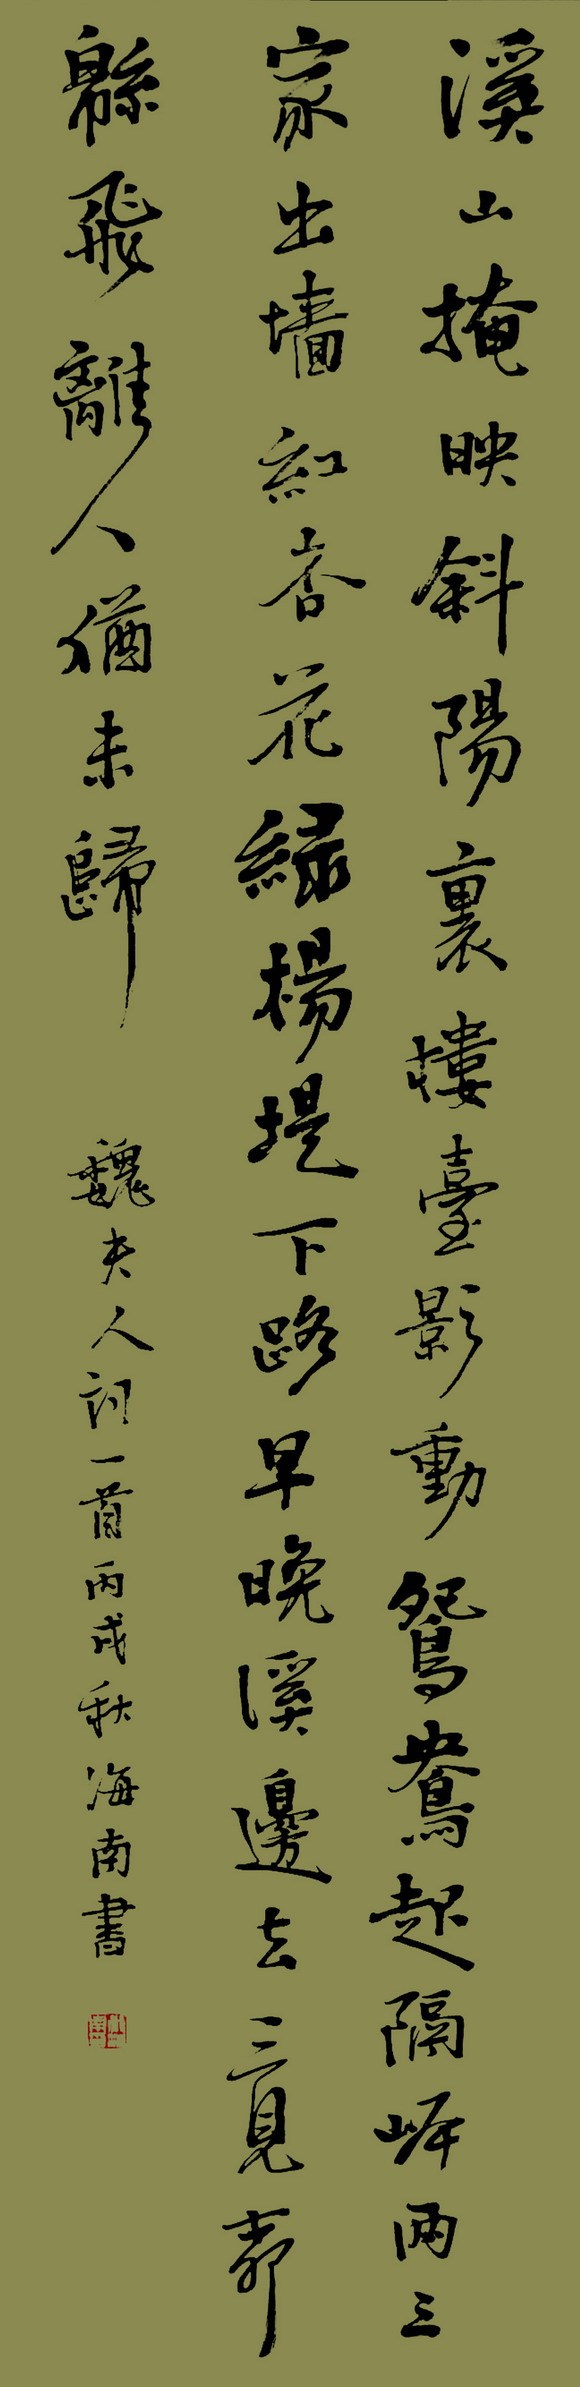 溪山掩映斜陽裏樓臺影動鴛鴦起隔岸兩三
家出墻紅杏花緑楊堤下路早晚溪邊去三見柳
緜飛離人猶未歸
魏夫人詞一首丙戌秋海南書